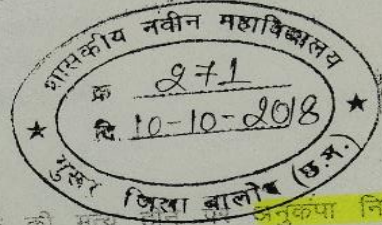 शासकीय नवीन महाविद्यालय
क्र 271
दि. 10-10-2018
★ गुरूर जिला बालोद (छ.ग.) ★
की मृत्यु होने पर अनुकंपा नि